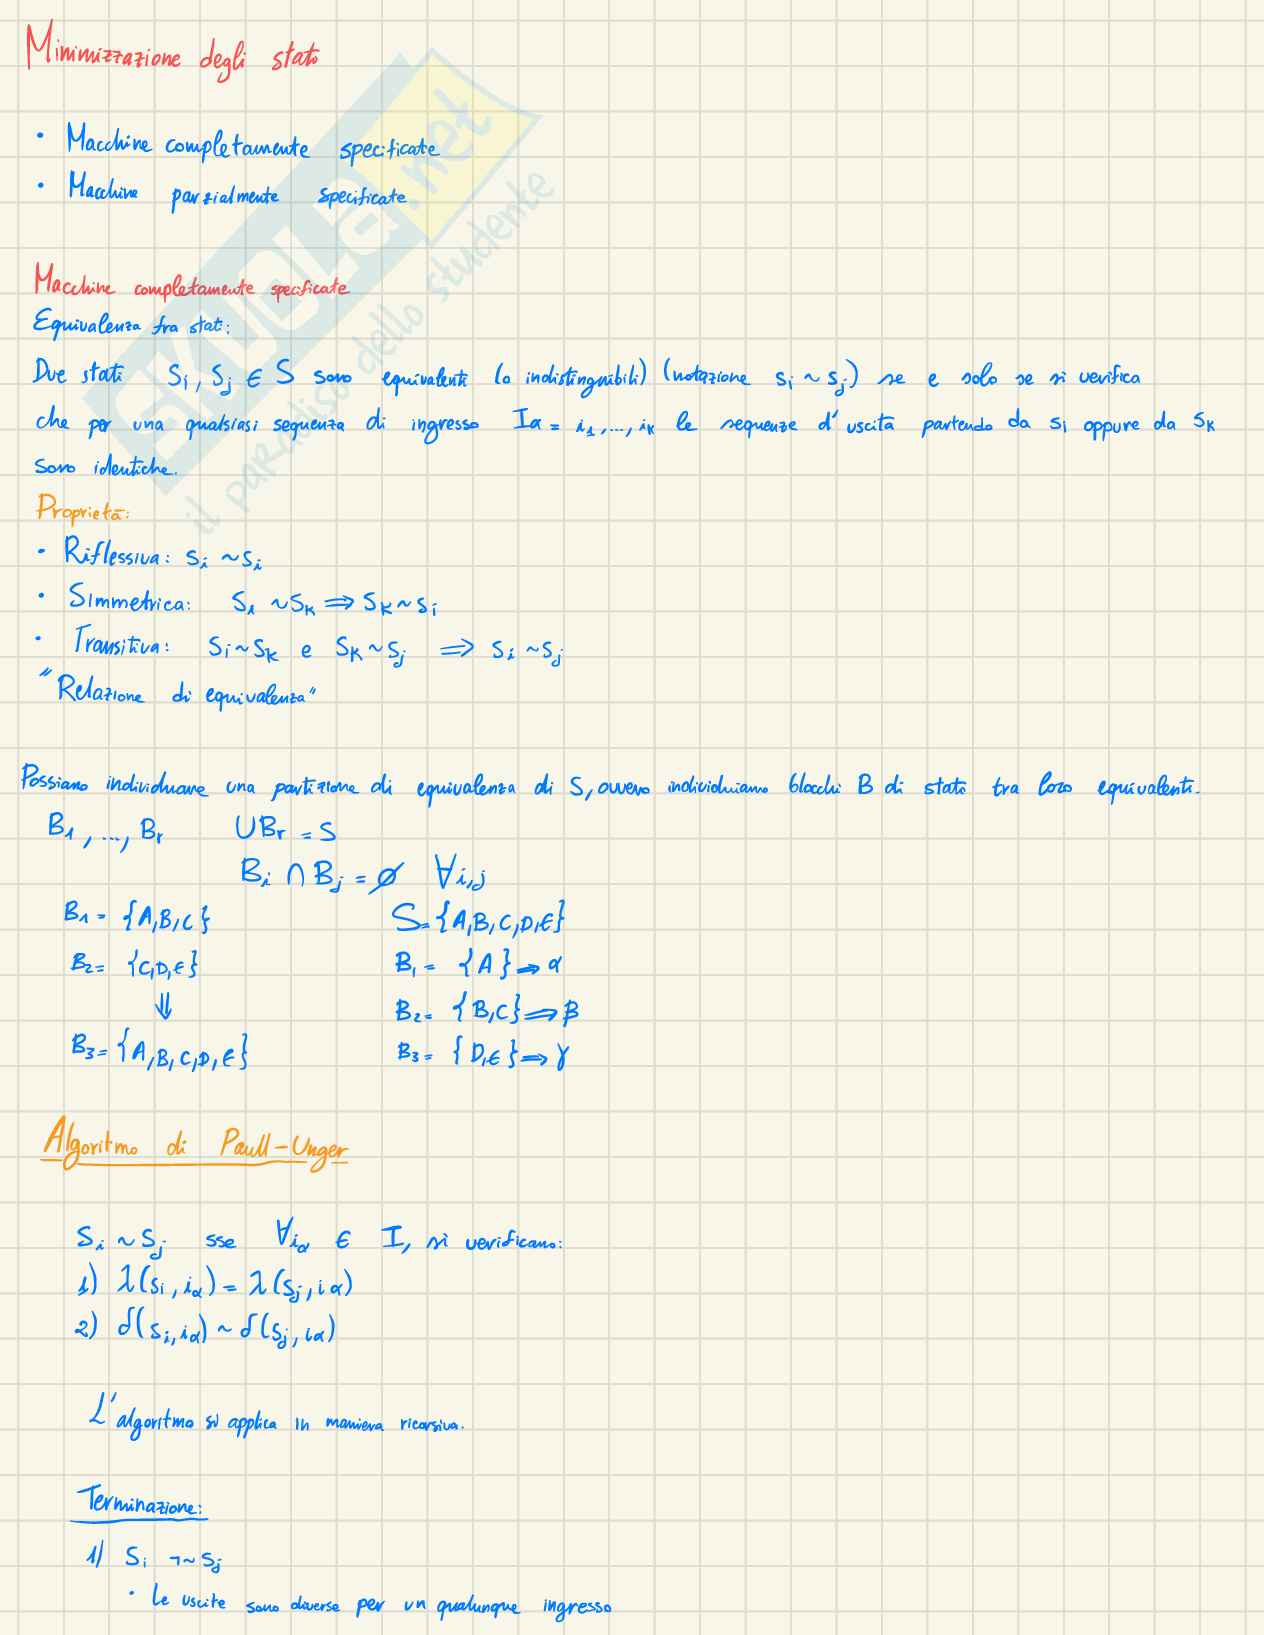 Minimizzazione degli stati
• Macchine completamente specificate
• Macchine parzialmente specificate
Macchine completamente specificate
Equivalenza fra stati:
Due stati Si, Sj ∈ S sono equivalenti (o indistinguibili) (notazione si ~ sj) se e solo se si verifica
che per una qualsiasi sequenza di ingresso Iα = i1, ..., ik le sequenze d'uscita partendo da si oppure da sk
sono identiche.
Proprietà:
• Riflessiva: si ~ si
• Simmetrica: si ~ sk ⇒ sk ~ si
• Transitiva: si ~ sk e sk ~ sj ⇒ si ~ sj
"Relazione di equivalenza"
Possiamo individuare una partizione di equivalenza di S, ovvero individuiamo blocchi B di stati tra loro equivalenti.
B1, ..., Br ∪Br = S
Bi ∩ Bj = ∅ ∀i,j
B1 = {A,B,C} S = {A,B,C,D,E}
B2 = {C,D,E} B1 = {A} ⇒ α
⇓ B2 = {B,C} ⇒ β
B3 = {A,B,C,D,E} B3 = {D,E} ⇒ γ
Algoritmo di Paull-Unger
Si ~ Sj sse ∀iα ∈ I, si verificano:
1) λ(si, iα) = λ(sj, iα)
2) δ(si, iα) ~ δ(sj, iα)
L'algoritmo si applica in maniera ricorsiva.
Terminazione:
1) Si ¬~ Sj
• Le uscite sono diverse per un qualunque ingresso
SKUOLA.net
il paradiso dello studente